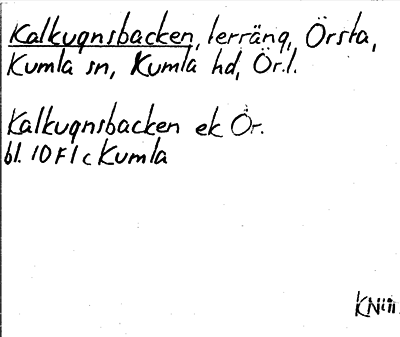 Kalkugnsbacken, terräng, Örsta,
Kumla sn, Kumla hd, Ör.l.
Kalkugnsbacken ek Ör.
bl. 10F1c Kumla